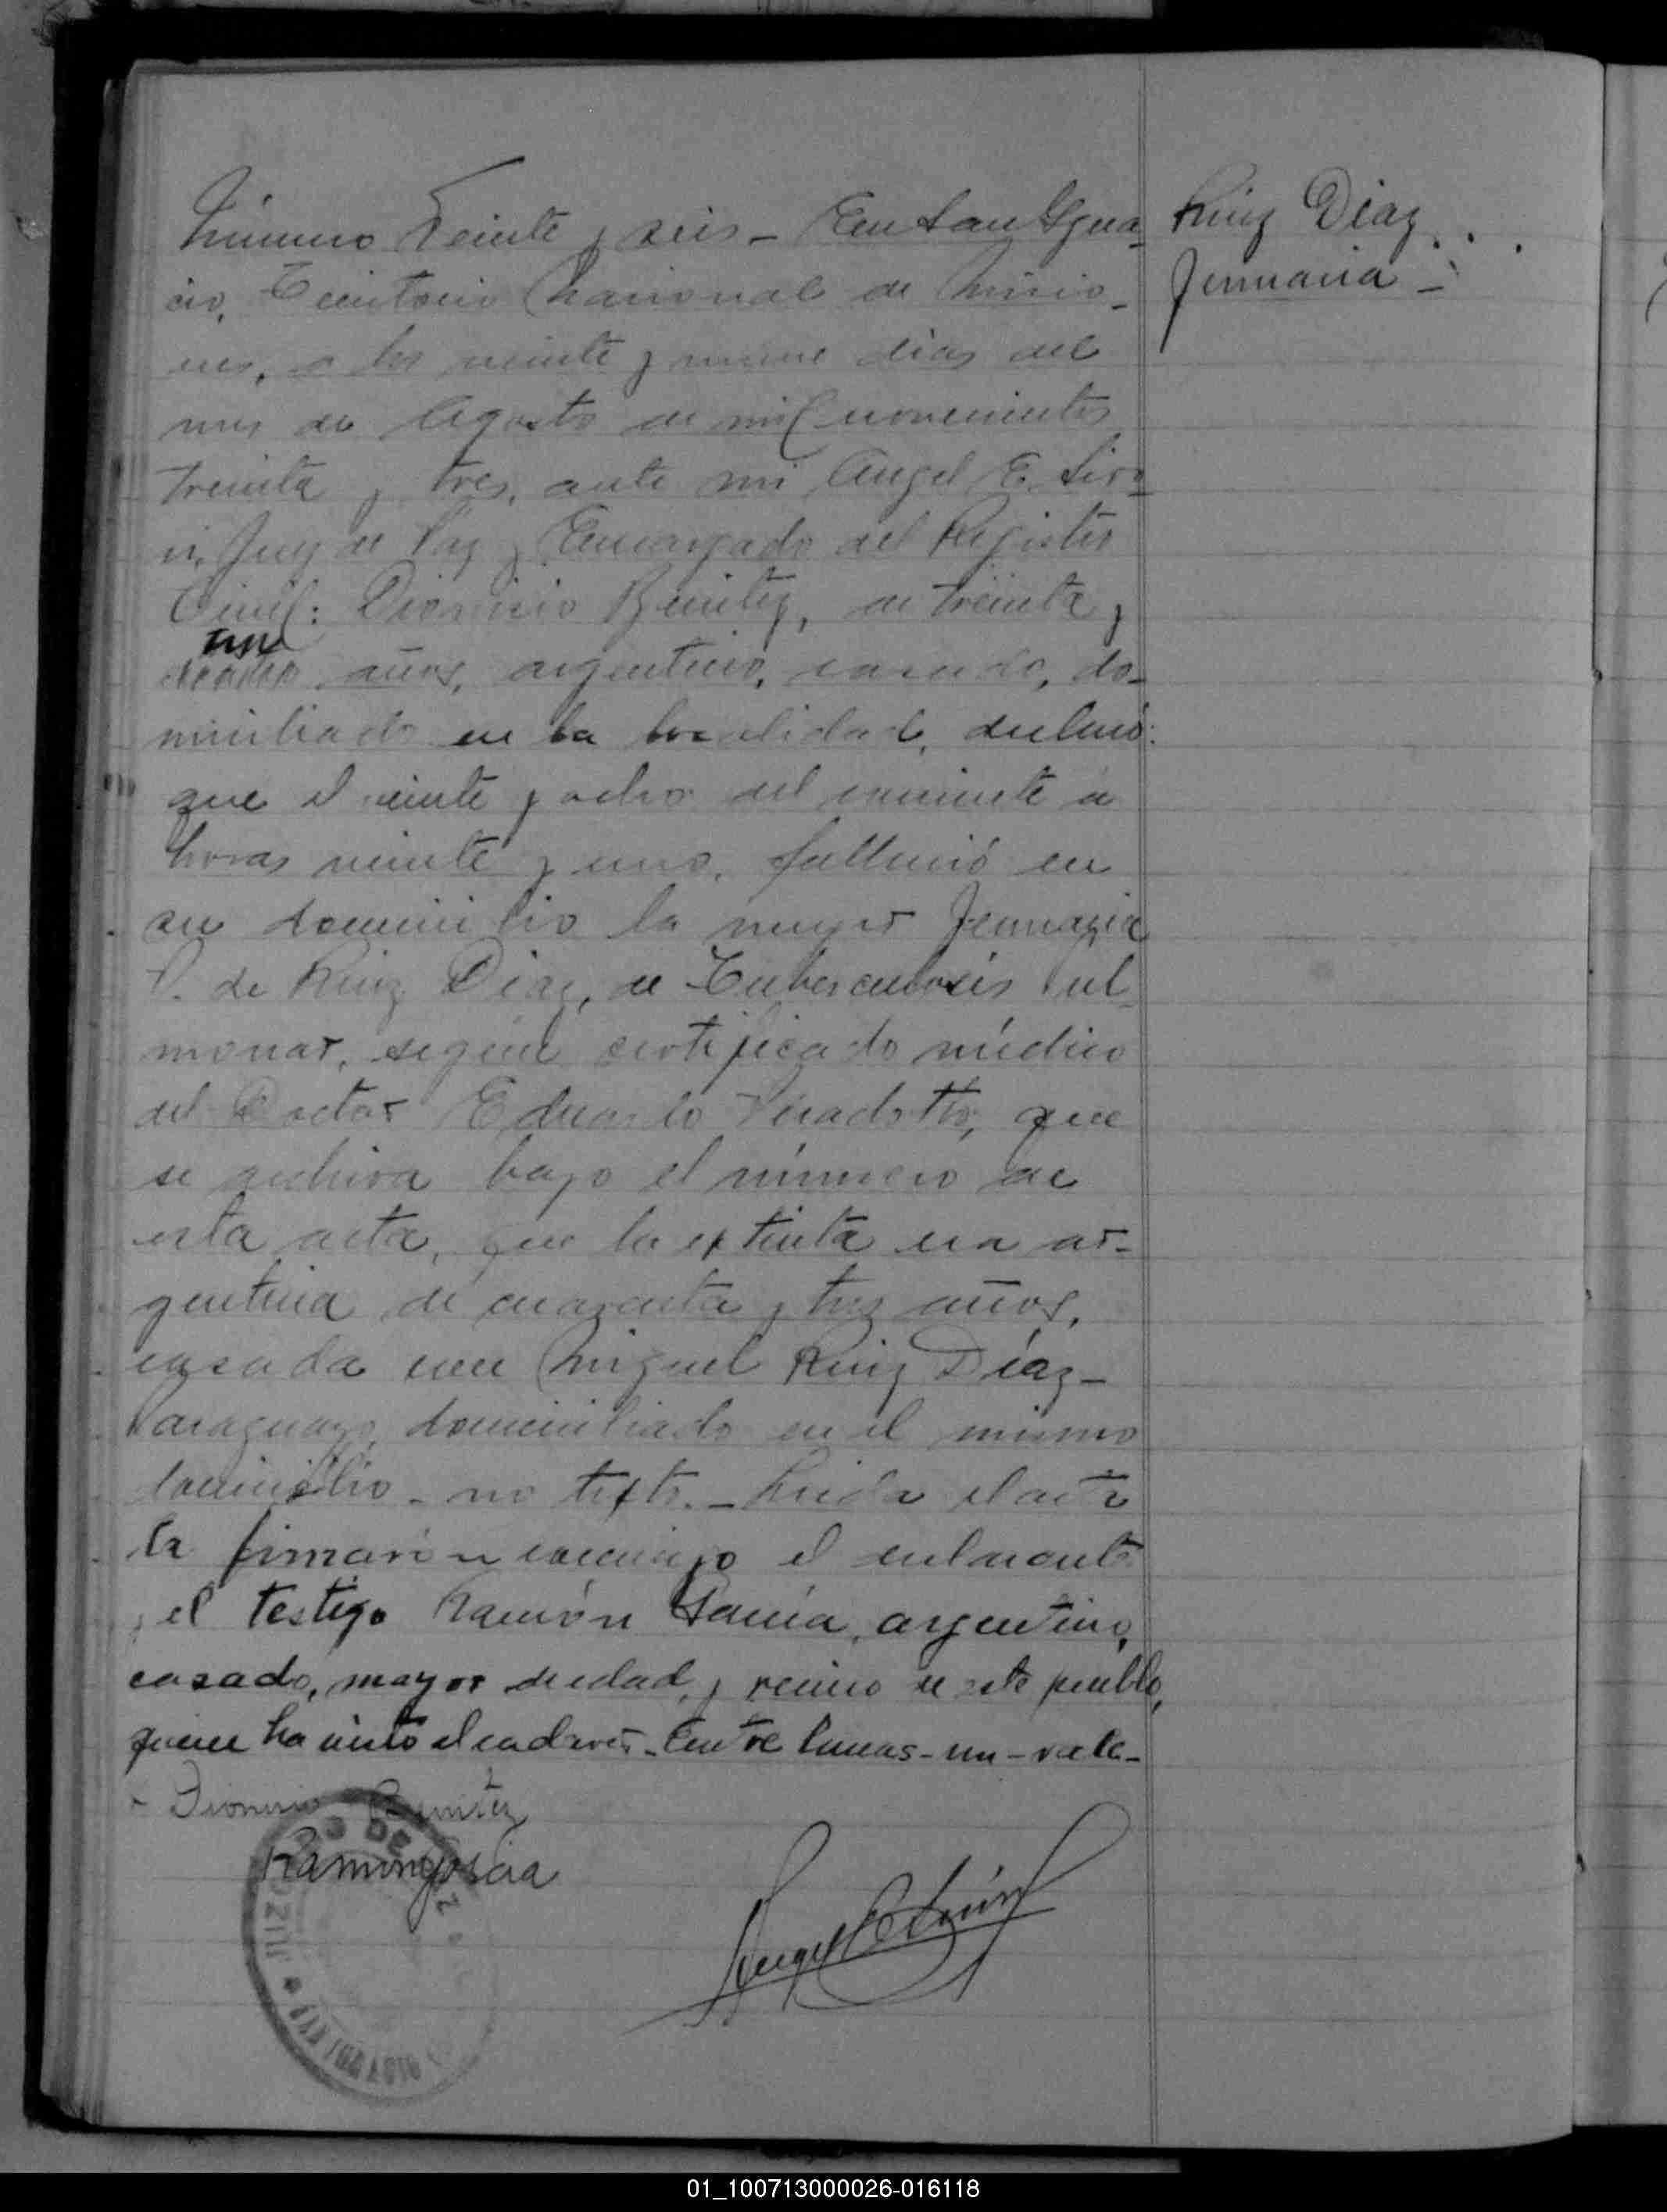 Número Veinte y seis - En San Igna-
cio, Territorio Nacional de Misio-
nes, a los veinte y nueve días del
mes de Agosto de mil novecientos
treinta y tres, ante mi Angel E.
Juez de Paz y Encargado del Registro
Civil: Dionicio Benitez, de treinta y
un
años, argentino, casado, do-
miciliado en la localidad, declaró:
que el veinte y ocho del corriente a
horas veinte y una, falleció en
su domicilio la mujer Jenuaria
P. de Ruiz Diaz, de Tuberculosis Pul
monar, según certificado médico
del Doctor Eduardo que
se archiva bajo el número de
esta acta, que la extinta era ar-
gentina de cuarenta y tres años,
casada con Miguel Ruiz Díaz -
Paraguayo, domiciliado en el mismo
domicilio - no testó. - Leida el acta
la firmaron conmigo el declarante
y el testigo Ramón argentino,
casado, mayor de edad, y vecino de este pueblo,
quien ha visto el cadaver. Entre lineas - un - vale -
Dionicio Benitez
Ramon
Angel E.
Ruiz Diaz
Jenuaria -
JUZGADO DE PAZ
SAN IGNACIO
01_100713000026-016118